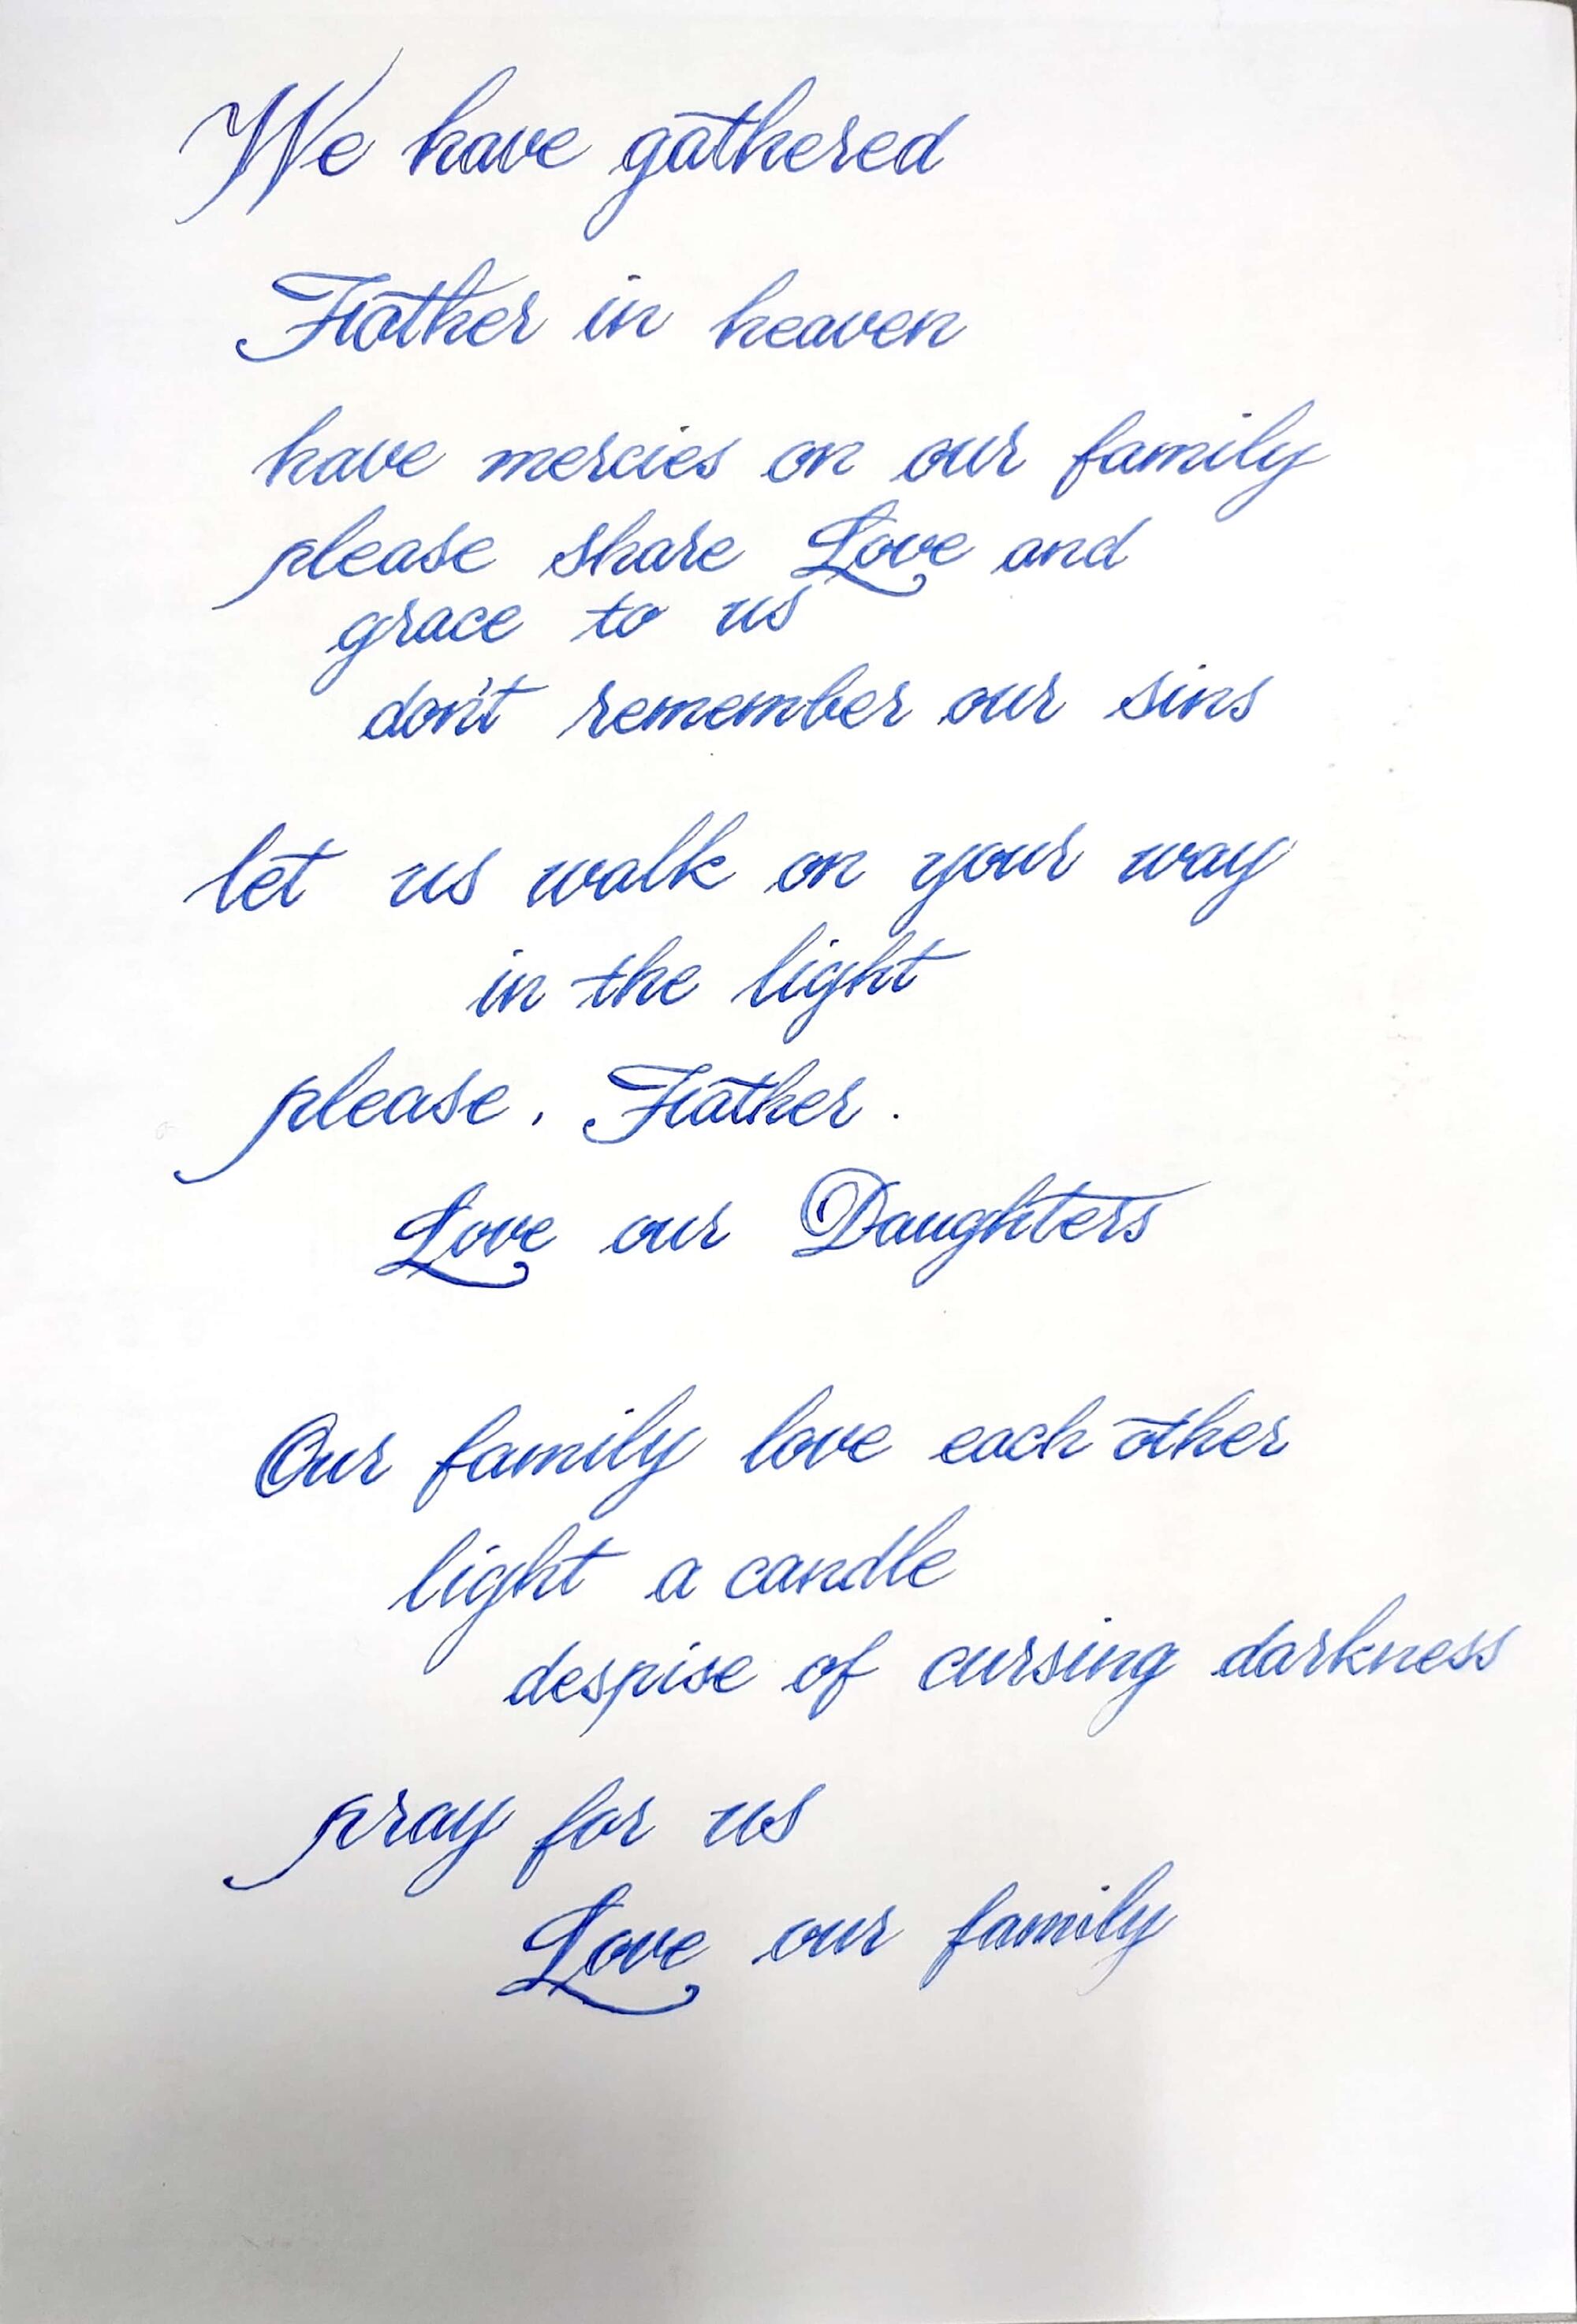 We have gathered
Father in heaven
have mercies on our family
please share Love and
grace to us
don't remember our sins
let us walk on your way
in the light
please, Father.
Love our Daughters
Our family love each other
light a candle
despise of cursing darkness
pray for us
Love our family